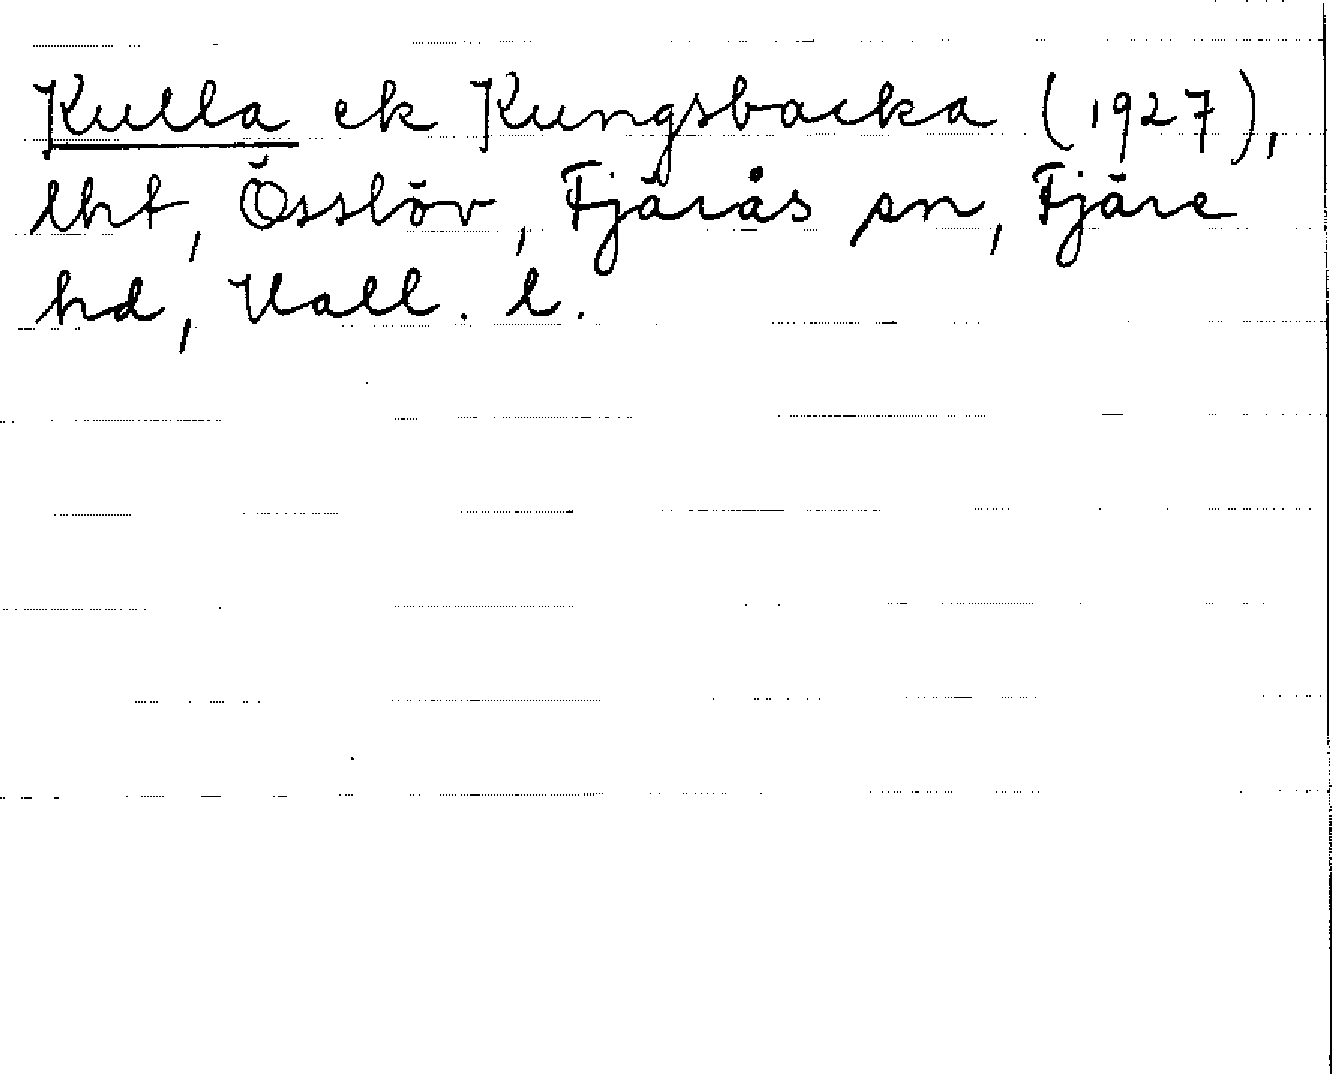 Kulla ek Kungsbacka (1927),
lht,Össlöv, Fjärås sn, Fjäre
hd, Hall. l.